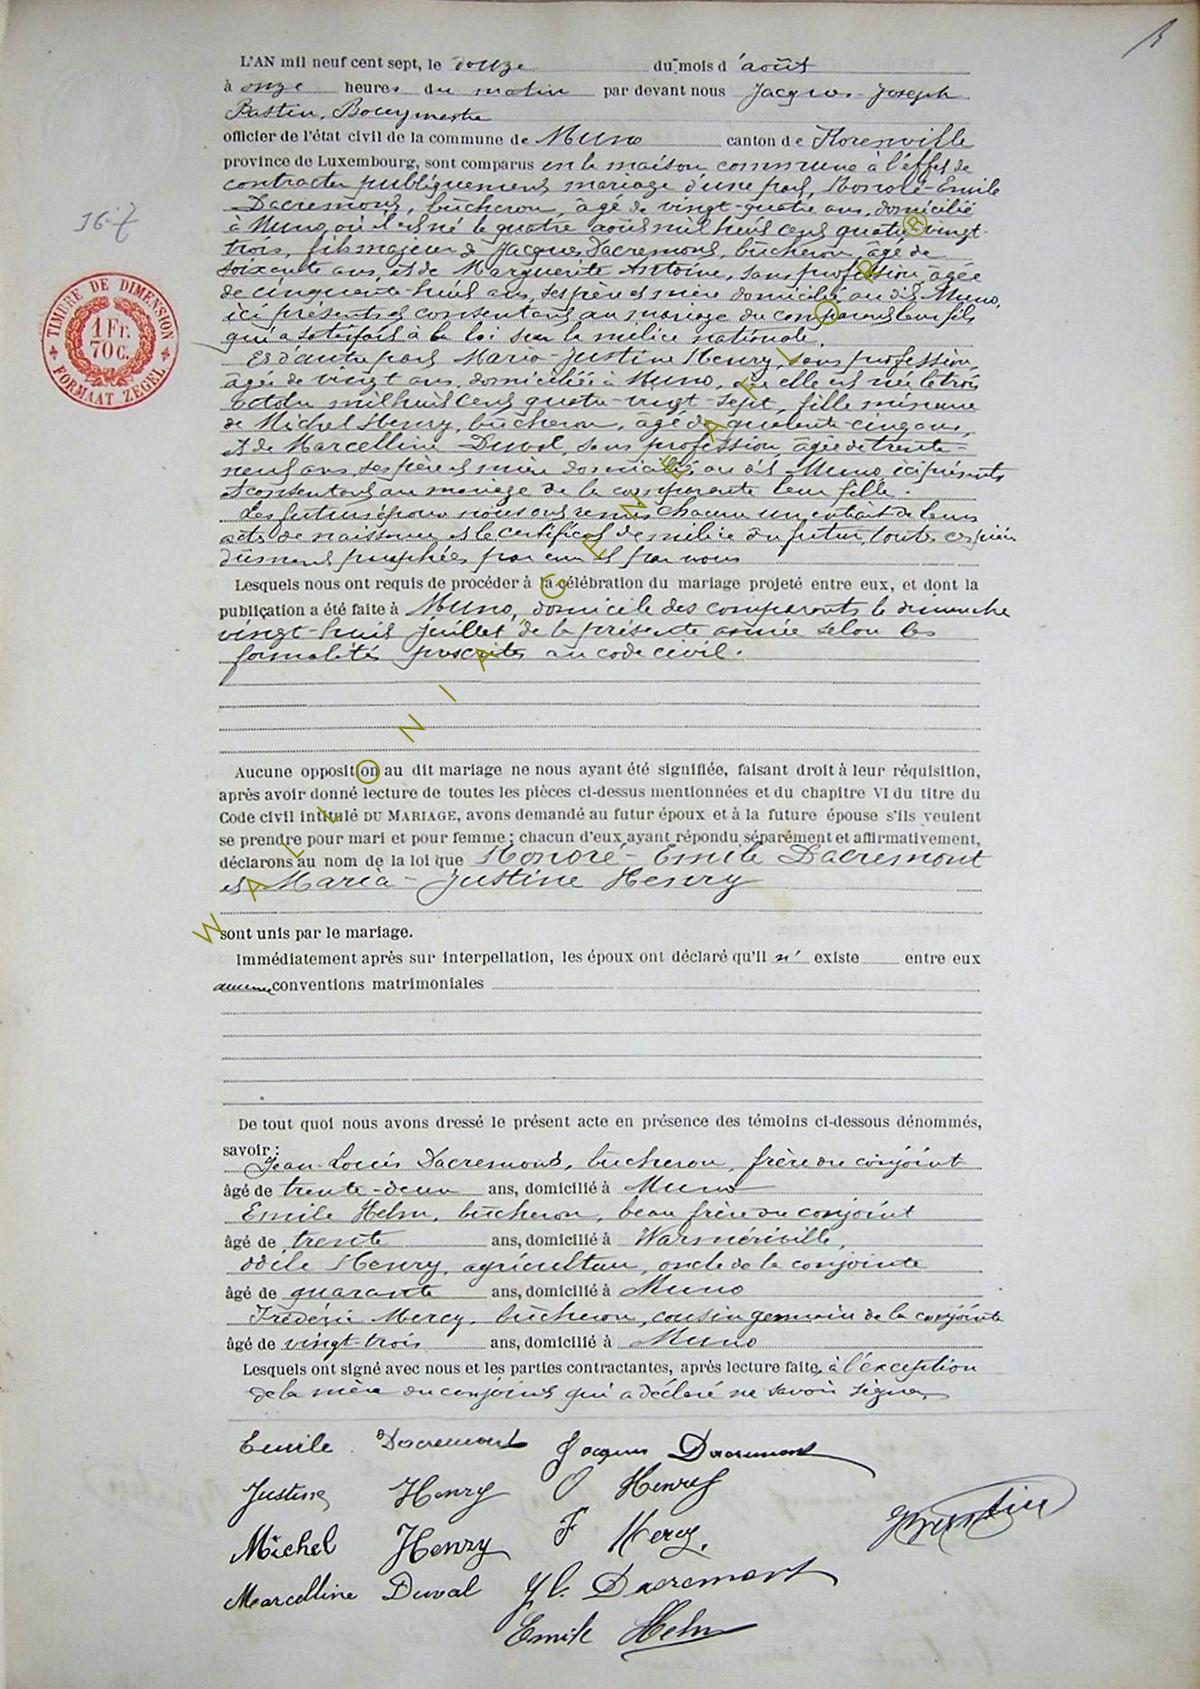 L'AN mil neuf cent sept, le douze du mois d'août
à onze heures du matin par devant nous Jacques-Joseph
Bastin, Bourgmestre
officier de l'état civil de la commune de Muno canton de Florenville
province de Luxembourg, sont comparus en la maison commune à l'effet de
contracter publiquement mariage d'une part, Honoré-Emile
Dacremont, bûcheron, âgé de vingt-quatre ans, domicilié
à Muno où il est né le quatre août mil huit cent quatre-vingt-
trois, fils majeur de Jacques Dacremont, bûcheron, âgé de
soixante ans, et de Marguerite Antoine, sans profession, âgée
de cinquante-huit ans, ses père et mère domiciliés au dit Muno,
ici présents et consentant au mariage du comparant leur fils
qui a satisfait à la loi sur la milice nationale.
Et d'autre part Maria-Justine Henry, sans profession,
âgée de vingt ans, domiciliée à Muno, où elle est née le trois
octobre mil huit cent quatre-vingt-sept, fille mineure
de Michel Henry, bûcheron, âgé de quarante-cinq ans,
et de Marcelline Duval, sans profession, âgée de trente-
neuf ans, ses père et mère domiciliés au dit Muno, ici présents
et consentant au mariage de la comparante leur fille.
Les futurs époux nous ont remis chacun un extrait de leurs
acte de naissance et le certificat de milice du futur, toutes ces pièces
dûment paraphées par eux et par nous
Lesquels nous ont requis de procéder à la célébration du mariage projeté entre eux, et dont la
publication a été faite à Muno, domicile des comparants le dimanche
vingt-huit juillet, de la présente année selon les
formalités prescrites au code civil.
Aucune opposition au dit mariage ne nous ayant été signifiée, faisant droit à leur réquisition,
après avoir donné lecture de toutes les pièces ci-dessus mentionnées et du chapitre VI du titre du
Code civil intitulé DU MARIAGE, avons demandé au futur époux et à la future épouse s'ils veulent
se prendre pour mari et pour femme; chacun d'eux ayant répondu séparément et affirmativement,
déclarons au nom de la loi que Honoré-Emile Dacremont
et Maria-Justine Henry
sont unis par le mariage.
Immédiatement après sur interpellation, les époux ont déclaré qu'il n' existe entre eux
aucune conventions matrimoniales
De tout quoi nous avons dressé le présent acte en présence des témoins ci-dessous dénommés,
savoir:
Jean-Louis Dacremont, bûcheron, frère du conjoint
âgé de trente-deux ans, domicilié à Muno
Emile Helm, bûcheron, beau frère du conjoint
âgé de trente ans, domicilié à Warmériville,
Odile Henry, agriculteur, oncle de la conjointe
âgé de quarante ans, domicilié à Muno
Frédéric Mercy, bûcheron, cousin germain de la conjointe
âgé de vingt-trois ans, domicilié à Muno
Lesquels ont signé avec nous et les parties contractantes, après lecture faite, à l'exception
de la mère du conjoint qui a déclaré ne savoir signer
Emile Dacremont Jacques Dacremont
Justine Henry O Henry
Michel Henry F Mercy.
JBastin
Marcelline Duval JL. Dacremont
Emile Helm
36-7
TIMBRE DE DIMENSION
1 Fr.
70 C.
FORMAAT ZEGEL
WALLONIA GENEAFLOR®